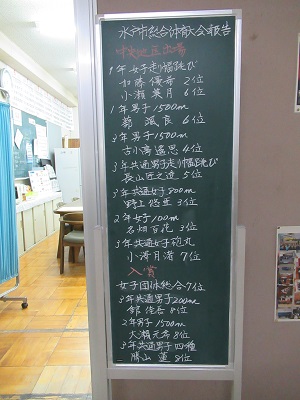 水戸市総合体育大会報告
中央地区出場
1年女子走り幅跳び
加藤優奇 2位
小瀬美月 6位
1年男子1500m
颯良 6位
2年男子1500m
遥思 4位
3年共通男子走り幅跳び
長山匠之進 5位
3年共通女子800m
野上悠里 3位
2年女子100m
名畑百花 3位
3年共通女子砲丸
小澤月渚 7位
入賞
女子団体総合7位
3年共通男子200m
舘佳吾 8位
2年男子1500m
大瀬元希 8位
3年共通男子四種
勝山蓮 8位